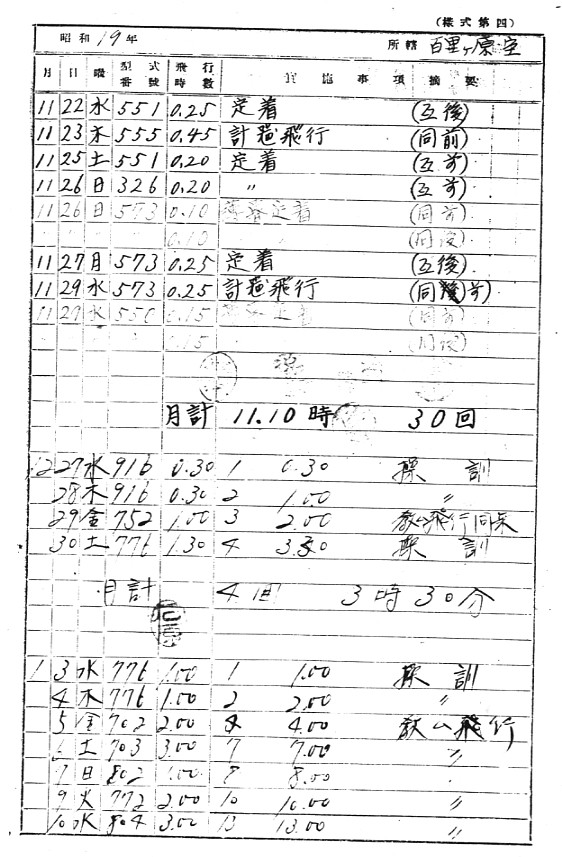 (樣式第四)
昭和19年 所轄 百里ヶ原空
月 日 曜 型式番號 飛行時數 實施事項 摘要
11 22 水 551 0.25 定着 (互後)
11 23 木 555 0.45 計器飛行 (同前)
11 25 土 551 0.20 定着 (互前)
11 26 日 326 0.20 〃 (互前)
11 26 日 573 0.10 定着 (同前)
0.10 (同後)
11 27 月 573 0.25 定着 (互後)
11 29 水 573 0.25 計器飛行 (同前)
11 水 0.15 (同前)
0.15 (同後)
月計 11.10時 30回
12 27 水 916 0.30 1 0.30 操訓
28 木 916 0.30 2 1.00 〃
29 金 752 1.00 3 2.00 飛行同乗
30 土 776 1.30 4 3.30 操訓
月計 4回 3時30分
1 3 水 776 1.00 1 1.00 操訓
4 木 776 1.00 2 2.00 〃
5 金 702 2.00 4 4.00 飛行
6 土 703 3.00 7 7.00 〃
7 日 802 1.00 8 8.00
9 火 772 2.00 10 10.00 〃
10 水 804 3.00 13 13.00 〃